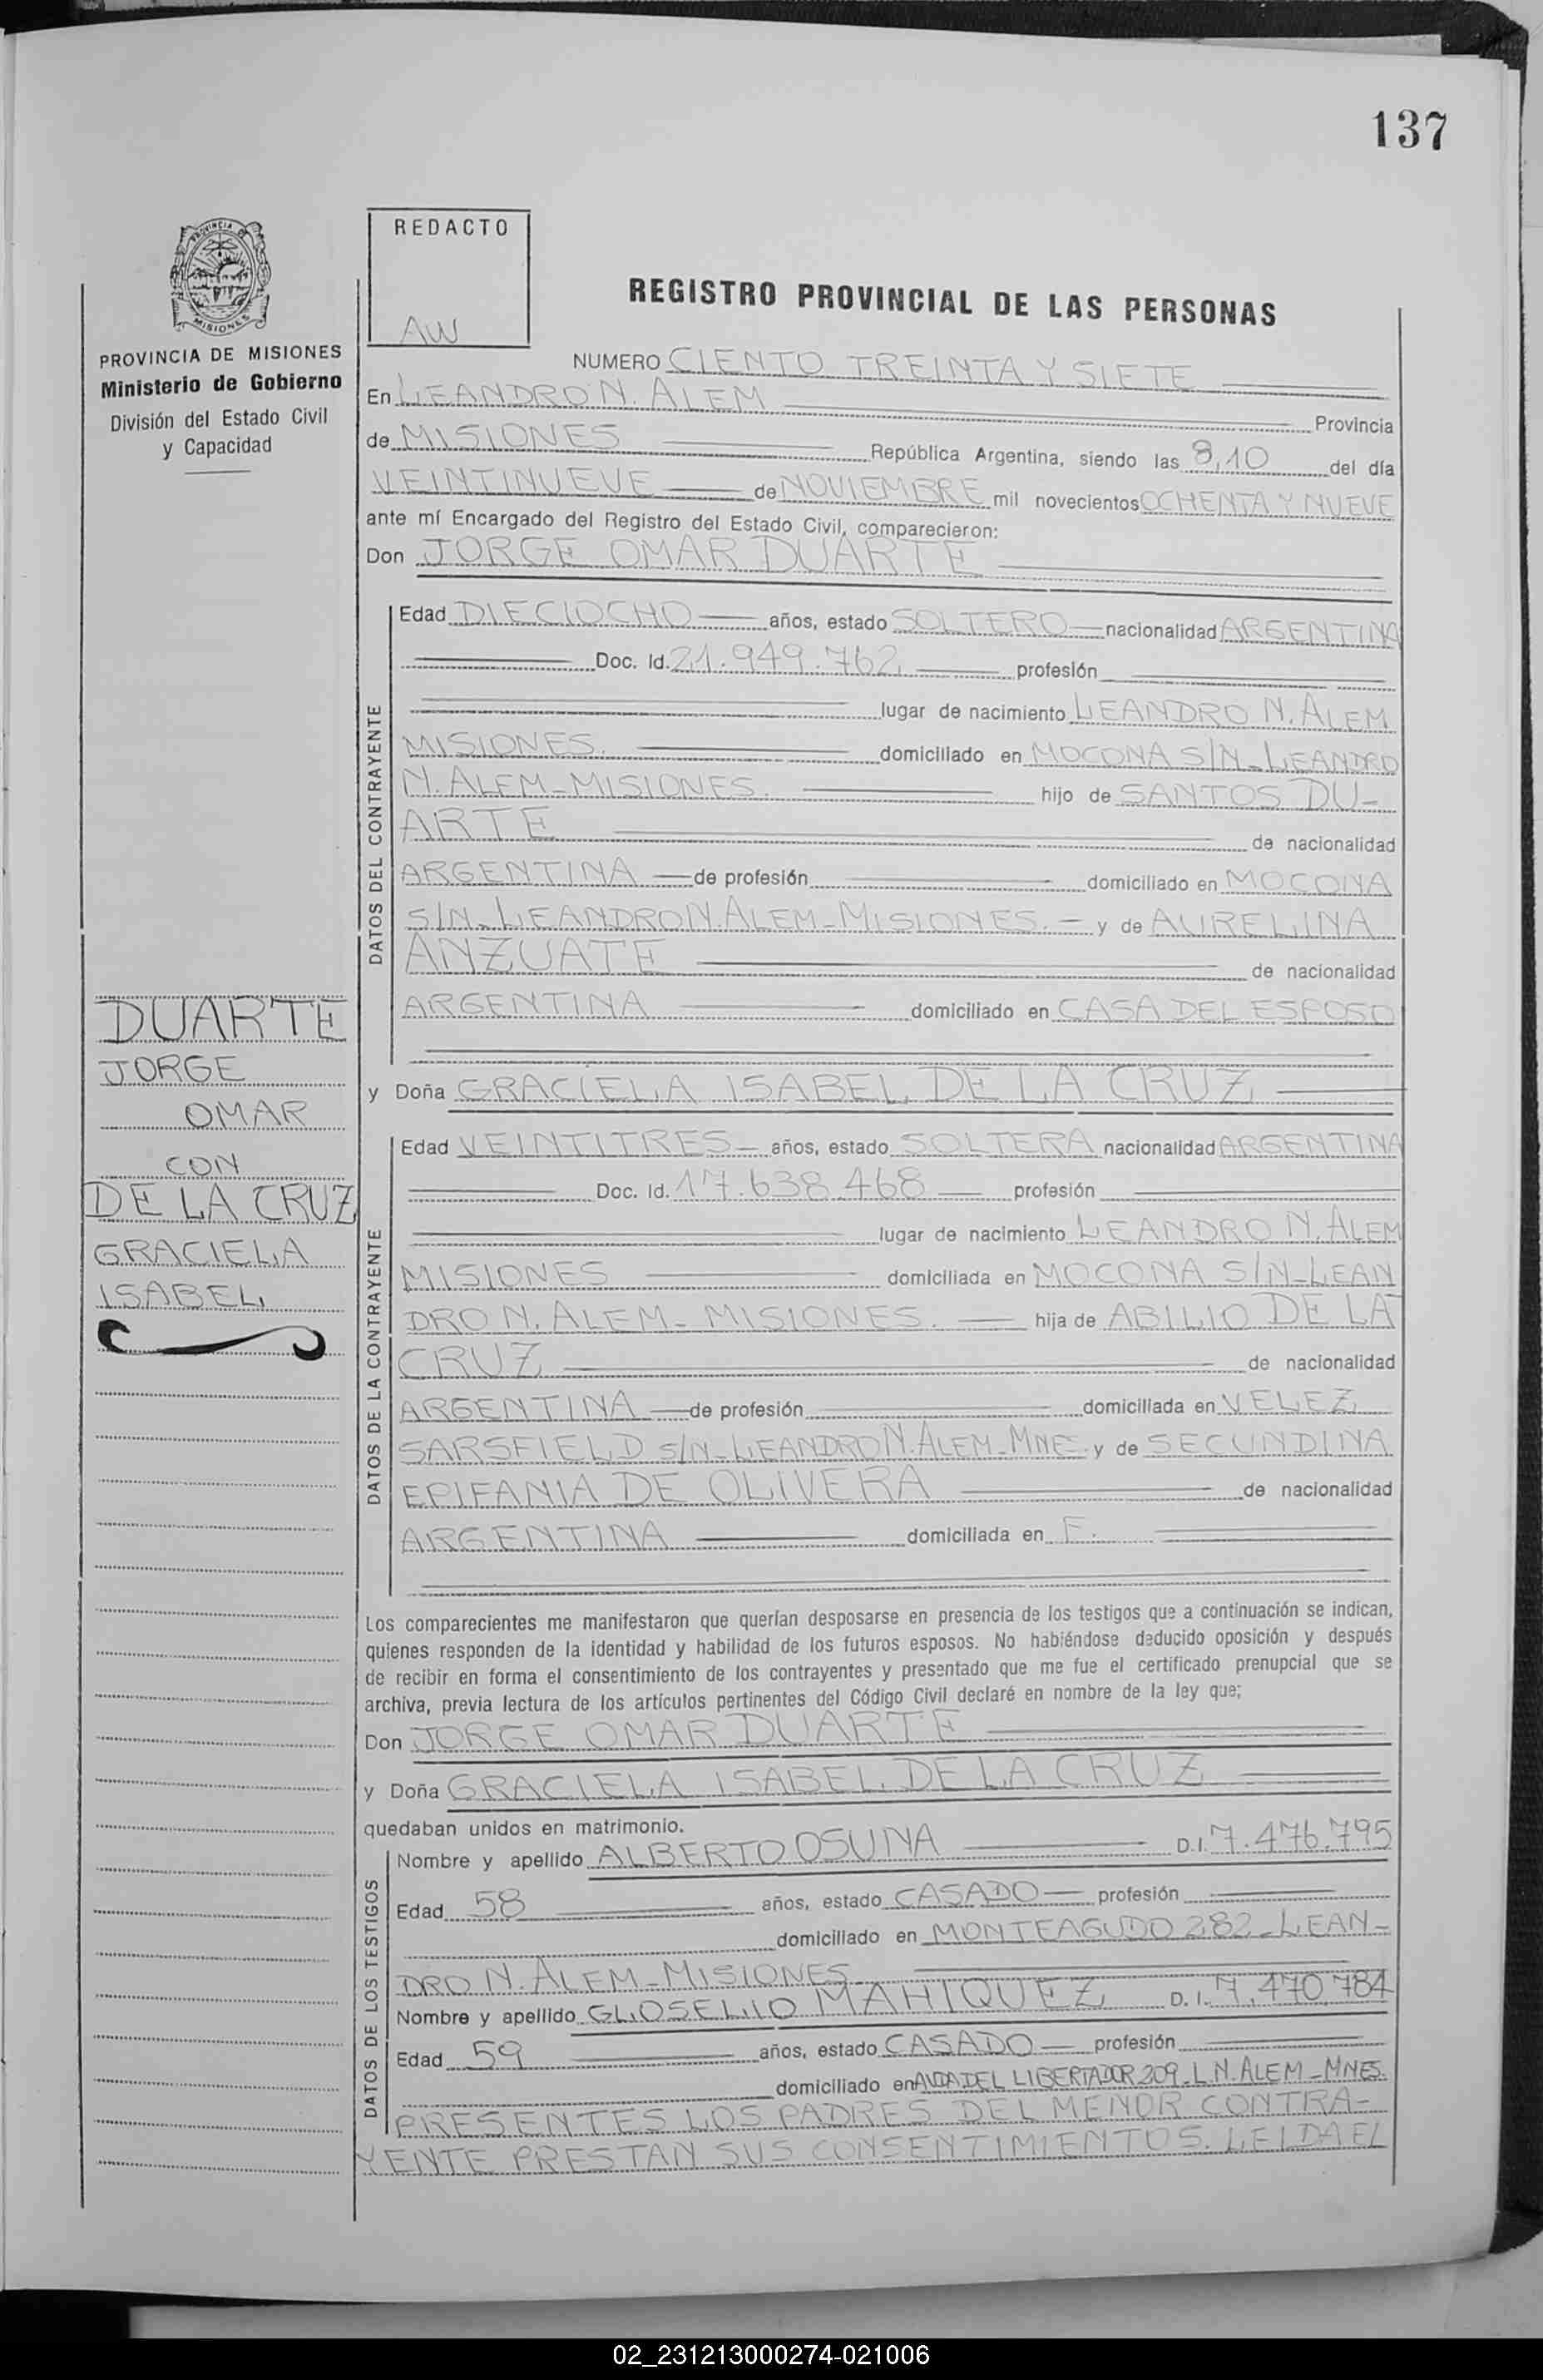 137
PROVINCIA DE MISIONES
Ministerio de Gobierno
División del Estado Civil
y Capacidad
REDACTO
AW
REGISTRO PROVINCIAL DE LAS PERSONAS
NUMERO CIENTO TREINTA Y SIETE
En LEANDRO N. ALEM Provincia
de MISIONES República Argentina, siendo las 8,10 del día
VEINTINUEVE de NOVIEMBRE mil novecientos OCHENTA Y NUEVE
ante mí Encargado del Registro del Estado Civil, comparecieron:
Don JORGE OMAR DUARTE
DATOS DEL CONTRAYENTE
Edad DIECIOCHO años, estado SOLTERO nacionalidad ARGENTINA
Doc. Id. 21.949.762 profesión
lugar de nacimiento LEANDRO N. ALEM
MISIONES. domiciliado en MOCONA S/N_LEANDRO
N. ALEM_MISIONES. hijo de SANTOS DU-
ARTE de nacionalidad
ARGENTINA de profesión domiciliado en MOCONA
S/N_LEANDRO N. ALEM_MISIONES. y de AURELINA
ANZUATE de nacionalidad
ARGENTINA domiciliado en CASA DEL ESPOSO
DUARTE
JORGE
OMAR
CON
DE LA CRUZ
GRACIELA
ISABEL
y Doña GRACIELA ISABEL DE LA CRUZ
DATOS DE LA CONTRAYENTE
Edad VEINTITRES años, estado SOLTERA nacionalidad ARGENTINA
Doc. Id. 17.638.468 profesión
lugar de nacimiento LEANDRO N. ALEM
MISIONES domiciliada en MOCONA S/N_LEAN
DRO N. ALEM_MISIONES. hija de ABILIO DE LA
CRUZ de nacionalidad
ARGENTINA de profesión domiciliada en VELEZ
SARSFIELD S/N_LEANDRO N. ALEM_MNE. y de SECUNDINA
EPIFANIA DE OLIVERA de nacionalidad
ARGENTINA domiciliada en F.
Los comparecientes me manifestaron que querían desposarse en presencia de los testigos que a continuación se indican,
quienes responden de la identidad y habilidad de los futuros esposos. No habiéndose deducido oposición y después
de recibir en forma el consentimiento de los contrayentes y presentado que me fue el certificado prenupcial que se
archiva, previa lectura de los artículos pertinentes del Código Civil declaré en nombre de la ley que;
Don JORGE OMAR DUARTE
y Doña GRACIELA ISABEL DE LA CRUZ
quedaban unidos en matrimonio.
DATOS DE LOS TESTIGOS
Nombre y apellido ALBERTO OSUNA D.I. 7.476.795
Edad 58 años, estado CASADO profesión
domiciliado en MONTEAGUDO 282_LEAN-
DRO N. ALEM_MISIONES
Nombre y apellido GLIOSELIO MAHIQUEZ D. I. 7.470.784
Edad 59 años, estado CASADO profesión
domiciliado en AVDA DEL LIBERTADOR 209_L.N. ALEM_MNES.
PRESENTES LOS PADRES DEL MENOR CONTRA-
YENTE PRESTAN SUS CONSENTIMIENTOS. LEIDA EL
02_231213000274-021006